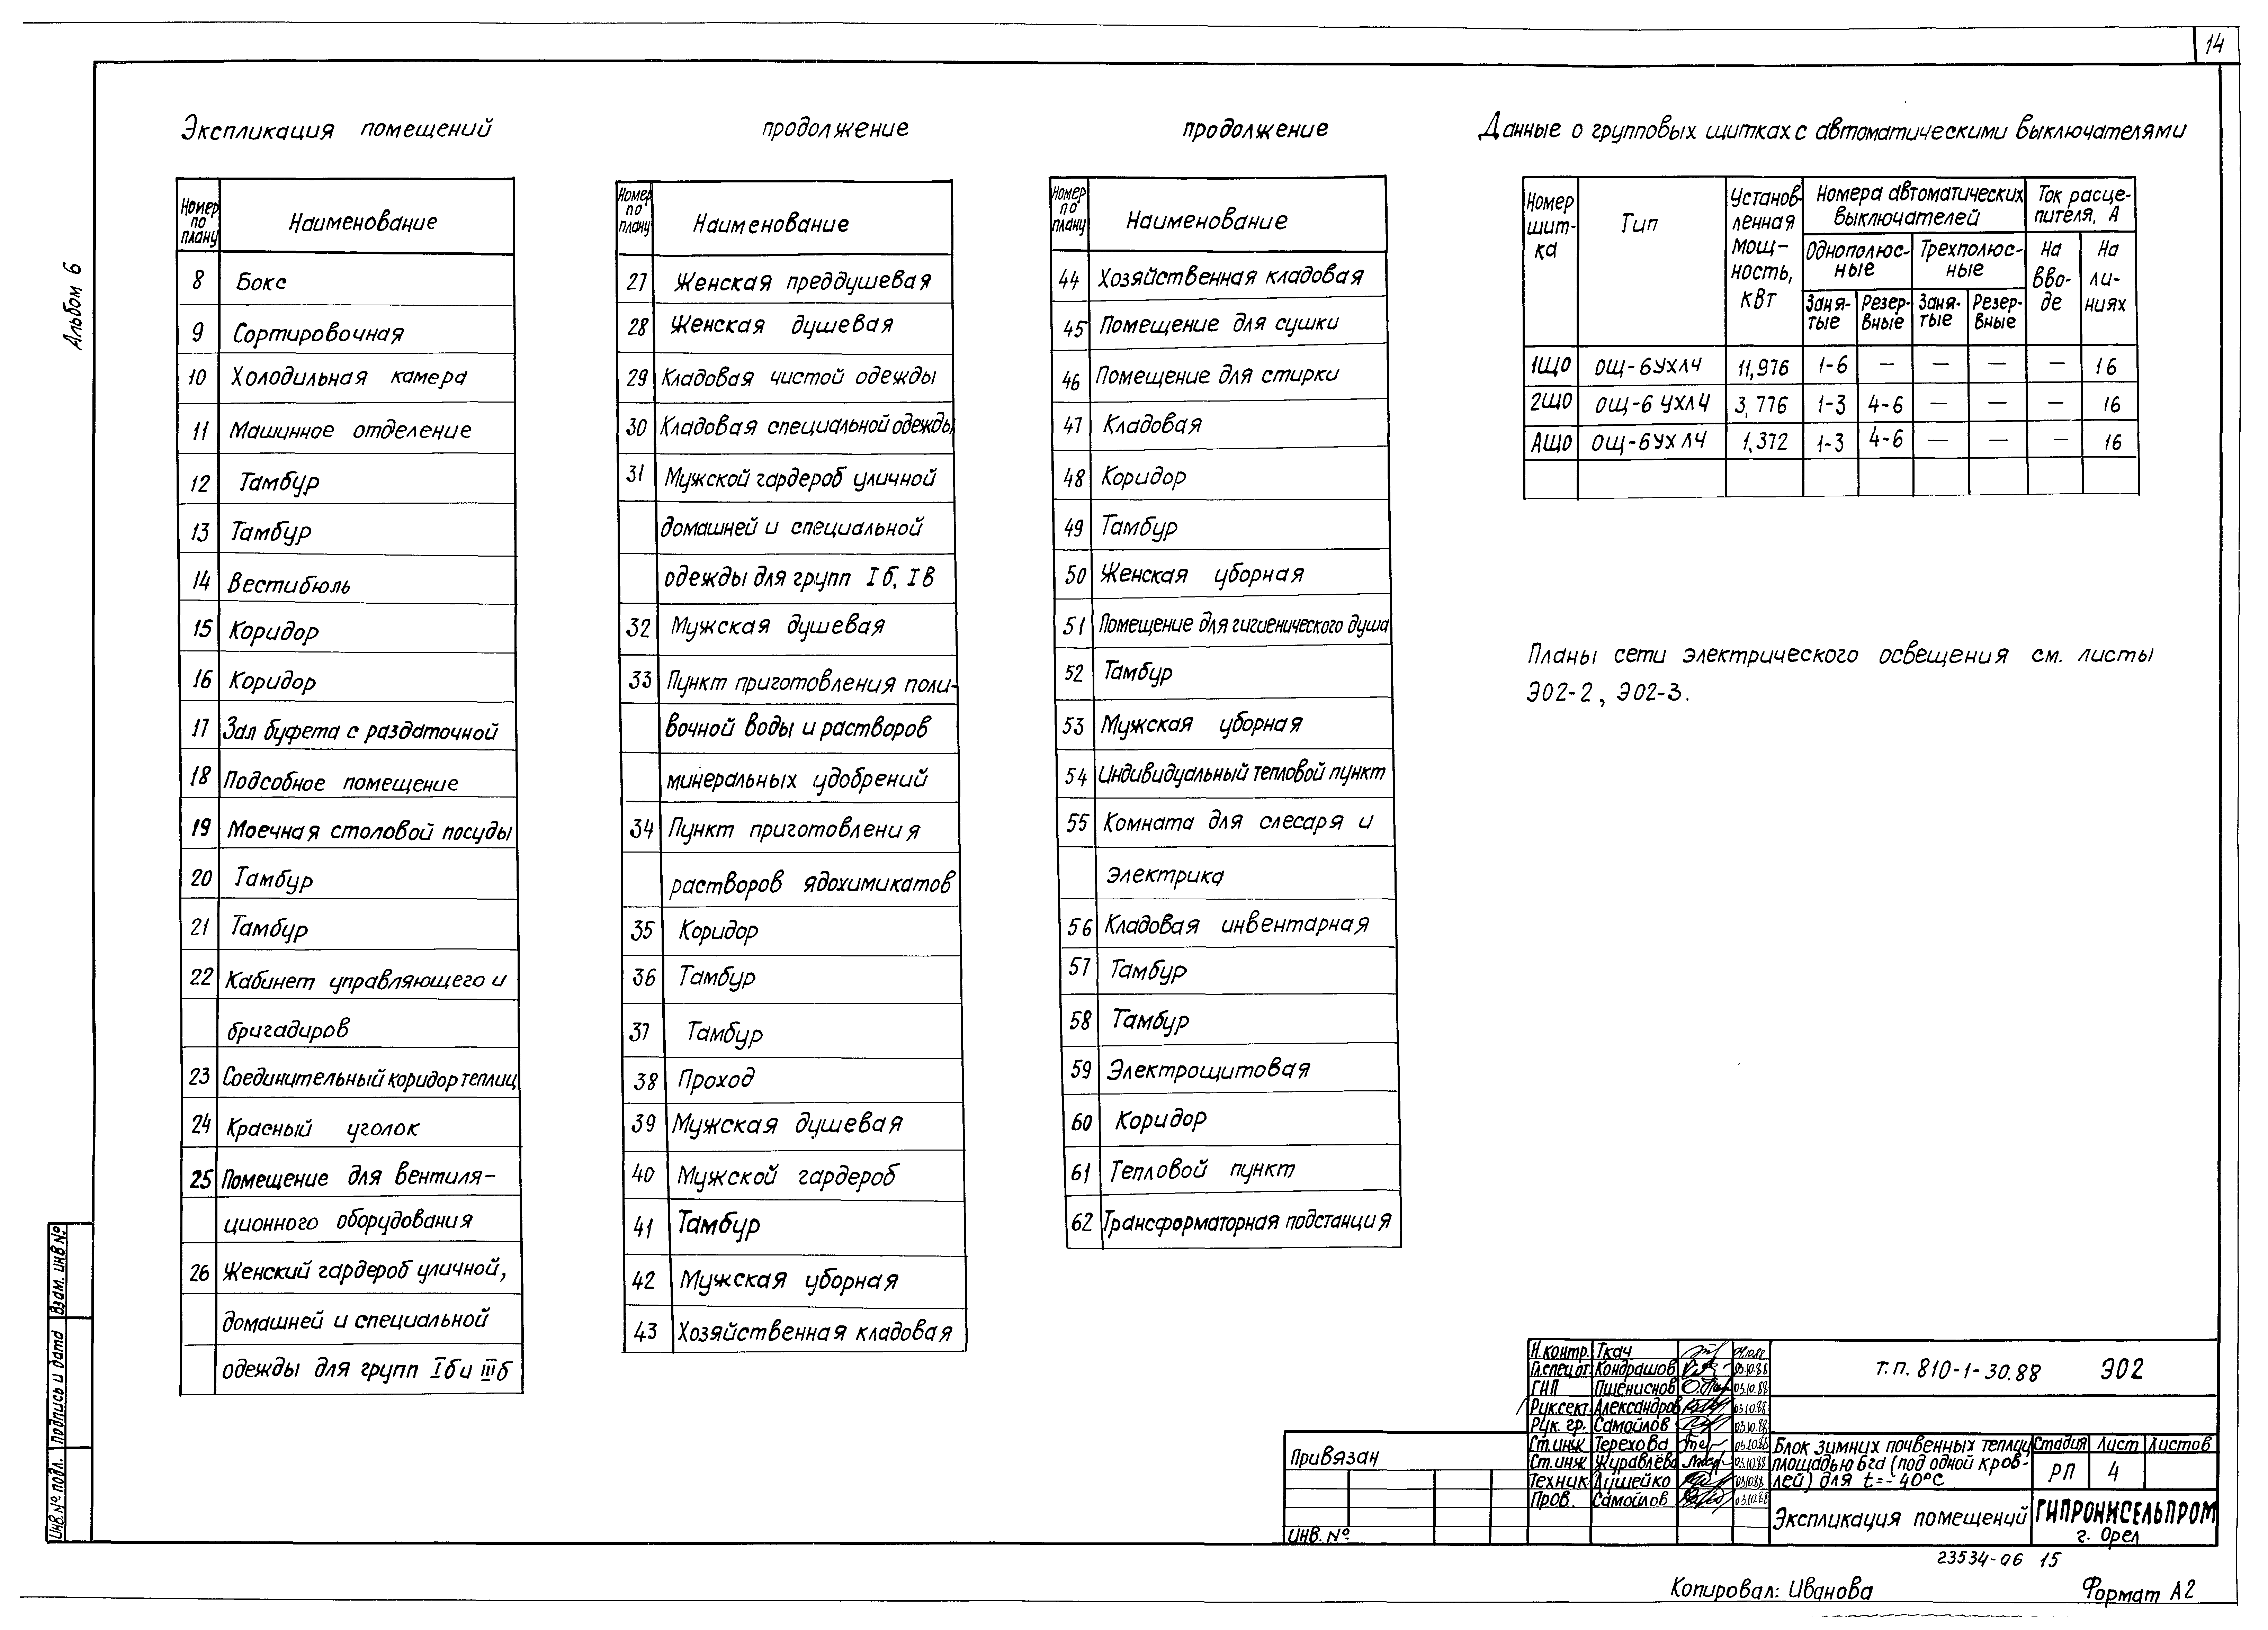 14
Альбом 6
Экспликация помещений
Номер по плану Наименование
8 Бокс
9 Сортировочная
10 Холодильная камера
11 Машинное отделение
12 Тамбур
13 Тамбур
14 Вестибюль
15 Коридор
16 Коридор
17 Зал буфета с раздаточной
18 Подсобное помещение
19 Моечная столовой посуды
20 Тамбур
21 Тамбур
22 Кабинет управляющего и
бригадиров
23 Соединительный коридор теплиц
24 Красный уголок
25 Помещение для вентиля-
ционного оборудования
26 Женский гардероб уличной,
домашней и специальной
одежды для групп Iб и IIIб
продолжение
Номер по плану Наименование
27 Женская преддушевая
28 Женская душевая
29 Кладовая чистой одежды
30 Кладовая специальной одежды
31 Мужской гардероб уличной
домашней и специальной
одежды для групп Iб, Iв
32 Мужская душевая
33 Пункт приготовления поли-
вочной воды и растворов
минеральных удобрений
34 Пункт приготовления
растворов ядохимикатов
35 Коридор
36 Тамбур
37 Тамбур
38 Проход
39 Мужская душевая
40 Мужской гардероб
41 Тамбур
42 Мужская уборная
43 Хозяйственная кладовая
продолжение
Номер по плану Наименование
44 Хозяйственная кладовая
45 Помещение для сушки
46 Помещение для стирки
47 Кладовая
48 Коридор
49 Тамбур
50 Женская уборная
51 Помещение для гигиенического душа
52 Тамбур
53 Мужская уборная
54 Индивидуальный тепловой пункт
55 Комната для слесаря и
электрика
56 Кладовая инвентарная
57 Тамбур
58 Тамбур
59 Электрощитовая
60 Коридор
61 Тепловой пункт
62 Трансформаторная подстанция
Данные о групповых щитках с автоматическими выключателями
Номер щит-ка Тип Установ-ленная мощ-ность, кВт Номера автоматических выключателей Ток расце-пителя, А
Однополюс-ные Трехполюс-ные На вво-де На ли-ниях
Заня-тые Резер-вные Заня-тые Резер-вные
1ЩО ОЩ-6УХЛ4 11,976 1-6 — — — — 16
2ЩО ОЩ-6 УХЛ4 3,776 1-3 4-6 — — — 16
АЩО ОЩ-6УХЛ4 1,372 1-3 4-6 — — — 16
Планы сети электрического освещения см. листы
ЭО2-2, ЭО2-3.
Инв.№ подл. Подпись и дата Взам. инв №
Привязан
Инв. №
Н.контр. Ткач
Гл.спец от. Кондрашов 03.10.88
ГИП Пшениснов 03.10.88
Рук.сект. Александров 03.10.88
Рук. гр. Самойлов 03.10.88
Ст.инж Терехова 03.10.88
Ст.инж Журавлёва 03.10.88
Техник Лушейко 03.10.88
Пров. Самойлов 03.10.88
Т.П. 810-1-30.88 ЭО2
Блок зимних почвенных теплиц
площадью 6га (под одной кров-
лей) для t=-40°C
Стадия Лист Листов
РП 4
Экспликация помещений
ГИПРОНИСЕЛЬПРОМ
г. Орел
23534-06 15
Копировал: Иванова Формат А2